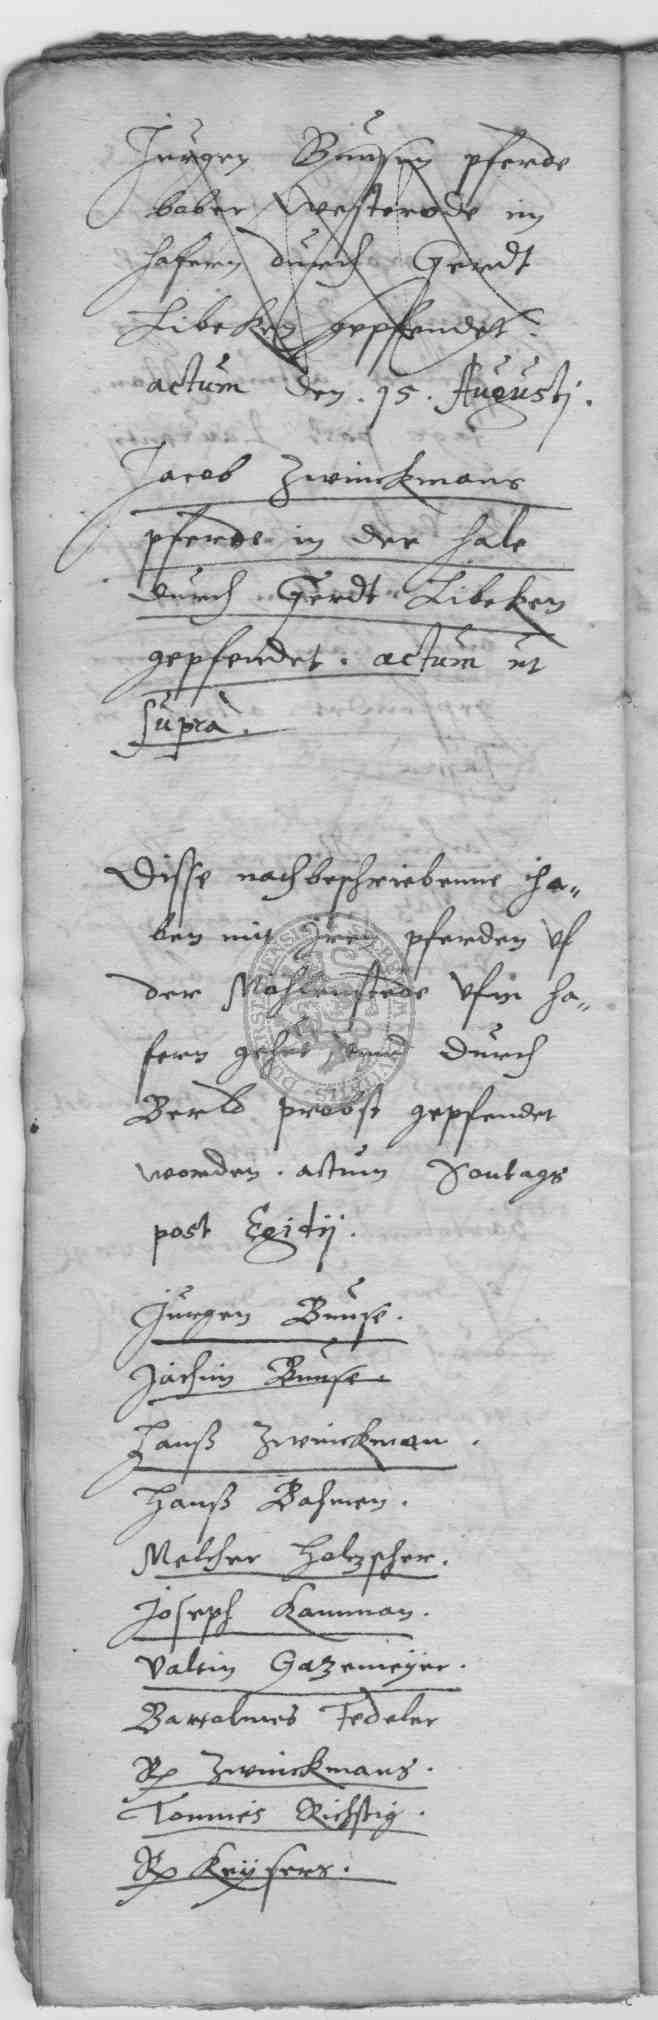 Jurgen Bunsen pferde
baber Westerode im
hafern durch Gerdt
Libeken gepfendet.
actum den. 15. Augustj.
Jacob Zwinckmans
pferde in der hale
durch Gerdt Libeken
gepfendet. actum ut
supra.
Disse nachbeschriebenne ha„
ben mit jren pferden vf
der Mohlenstede vfm ha„
fern gehut vnd durch
Berld probst gepfendet
worden. actum Sontags
post Egidij.
Jurgen Bunse.
Jachim Bunse.
Hanß Zwinckman.
Hanß Bahmen.
Melcher Holzscher.
Joseph Kamman.
Valtin Gazemeyer.
Bartolmes Fedeler
Rp Zwinckmans.
Tonnies Richtig.
Rp Keysers.